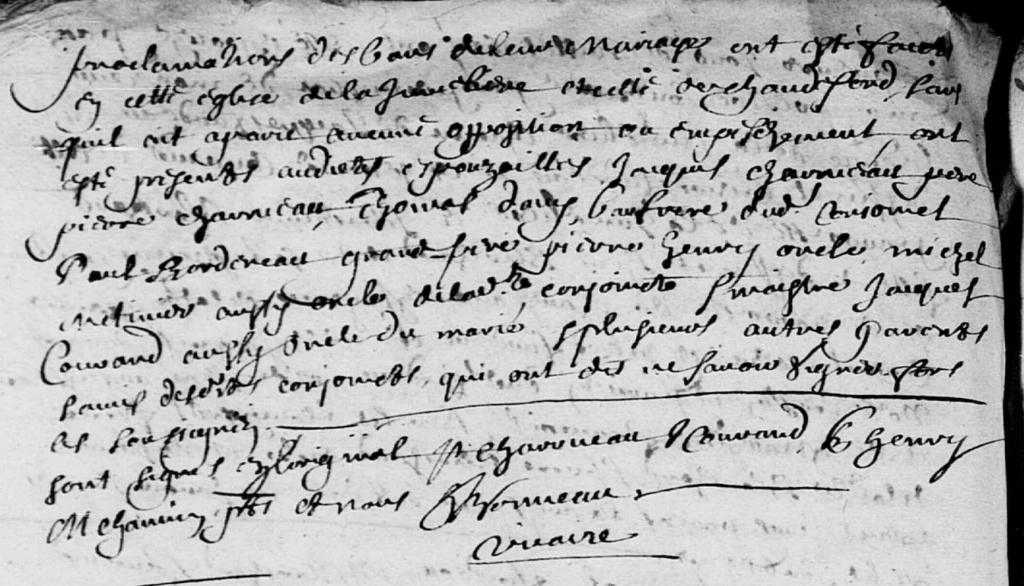 proclamations des bans de leur Mariage ont esté faict
en cette église de la Jumeliere et celle de chaudefond sans
quil ait aparu aucune opposition ou empeschement, ont
esté présents ausdictes espouzailles Jacques charruau pere
pierre charruau, Thomas beaufrere dud. conjoinct
Paul Bordereau grand pere pierre henry oncle michel
metivier aussy oncle de lad.te conjoincte maistre Jacques
Couraud aussy oncle du marié & plusieurs autres parents
desdits conjoincts, qui ont dit ne savoir signer fors
les soussignéz
sont signés en l'original charruau J Couraud henry
ptre et nous
vicaire